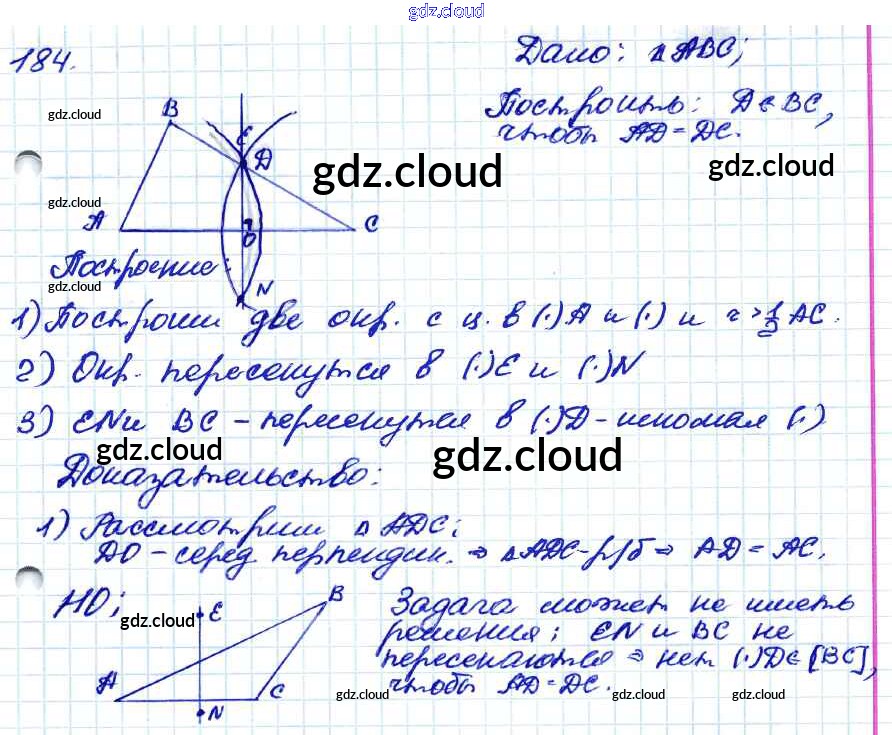 gdz.cloud
184.
Дано: △ABC;
Построить: D ∈ BC,
чтобы AD = DC.
gdz.cloud
gdz.cloud
gdz.cloud
gdz.cloud
B
E
D
A
C
O
N
Построение:
gdz.cloud
1) Построим две окр. с ц. в (·)A и (·) и r > 1/2 AC.
2) Окр. пересекутся в (·)E и (·)N
3) EN и BC – пересекутся в (·)D – искомая (·)
gdz.cloud
gdz.cloud
Доказательство:
1) Рассмотрим △ADC;
DO – серед. перпендик. ⇒ △ADC – р/б ⇒ AD = AC.
НО;
gdz.cloud
E
B
A
C
N
Задача может не иметь
решения; EN и BC не
пересекаются ⇒ нет (·)D ∈ [BC],
чтобы AD = DC.
gdz.cloud
gdz.cloud
gdz.cloud